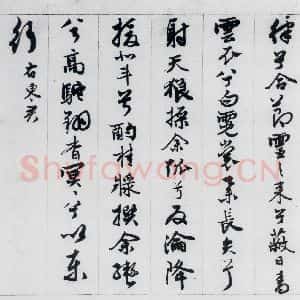 律兮合節靈之来兮蔽日青
雲衣兮白霓裳舉長矢兮
射天狼操余弧兮反淪降
援北斗兮酌桂漿撰余轡
兮高駝翔杳冥冥兮以東
行
右東君
Shufawang.CN